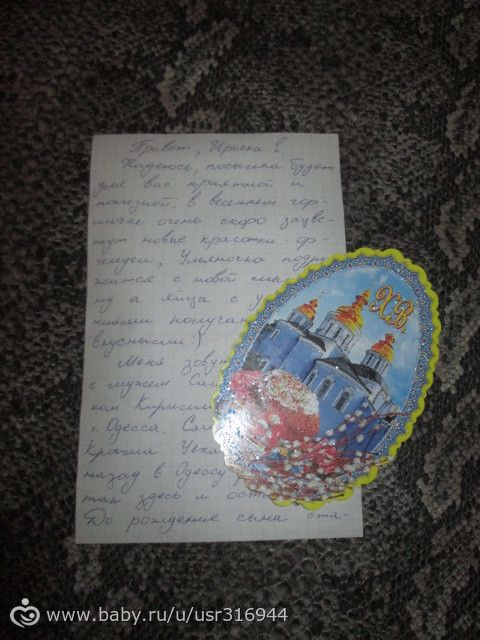 Привет, Ирочка!
Надеюсь, посылка будет
для вас приятной и
полезной. В весеннем гор-
шочке очень скоро зацве-
тут новые красотки - ор-
хидеи, Ульяночка подру-
жится с новой
а яйца с
получат
вкусными:)
Меня зовут
с мужем
ком Кирилл
г. Одесса.
назад в Одессу
так здесь и ост
До рождение сына
Х.В.
www.baby.ru/u/usr316944